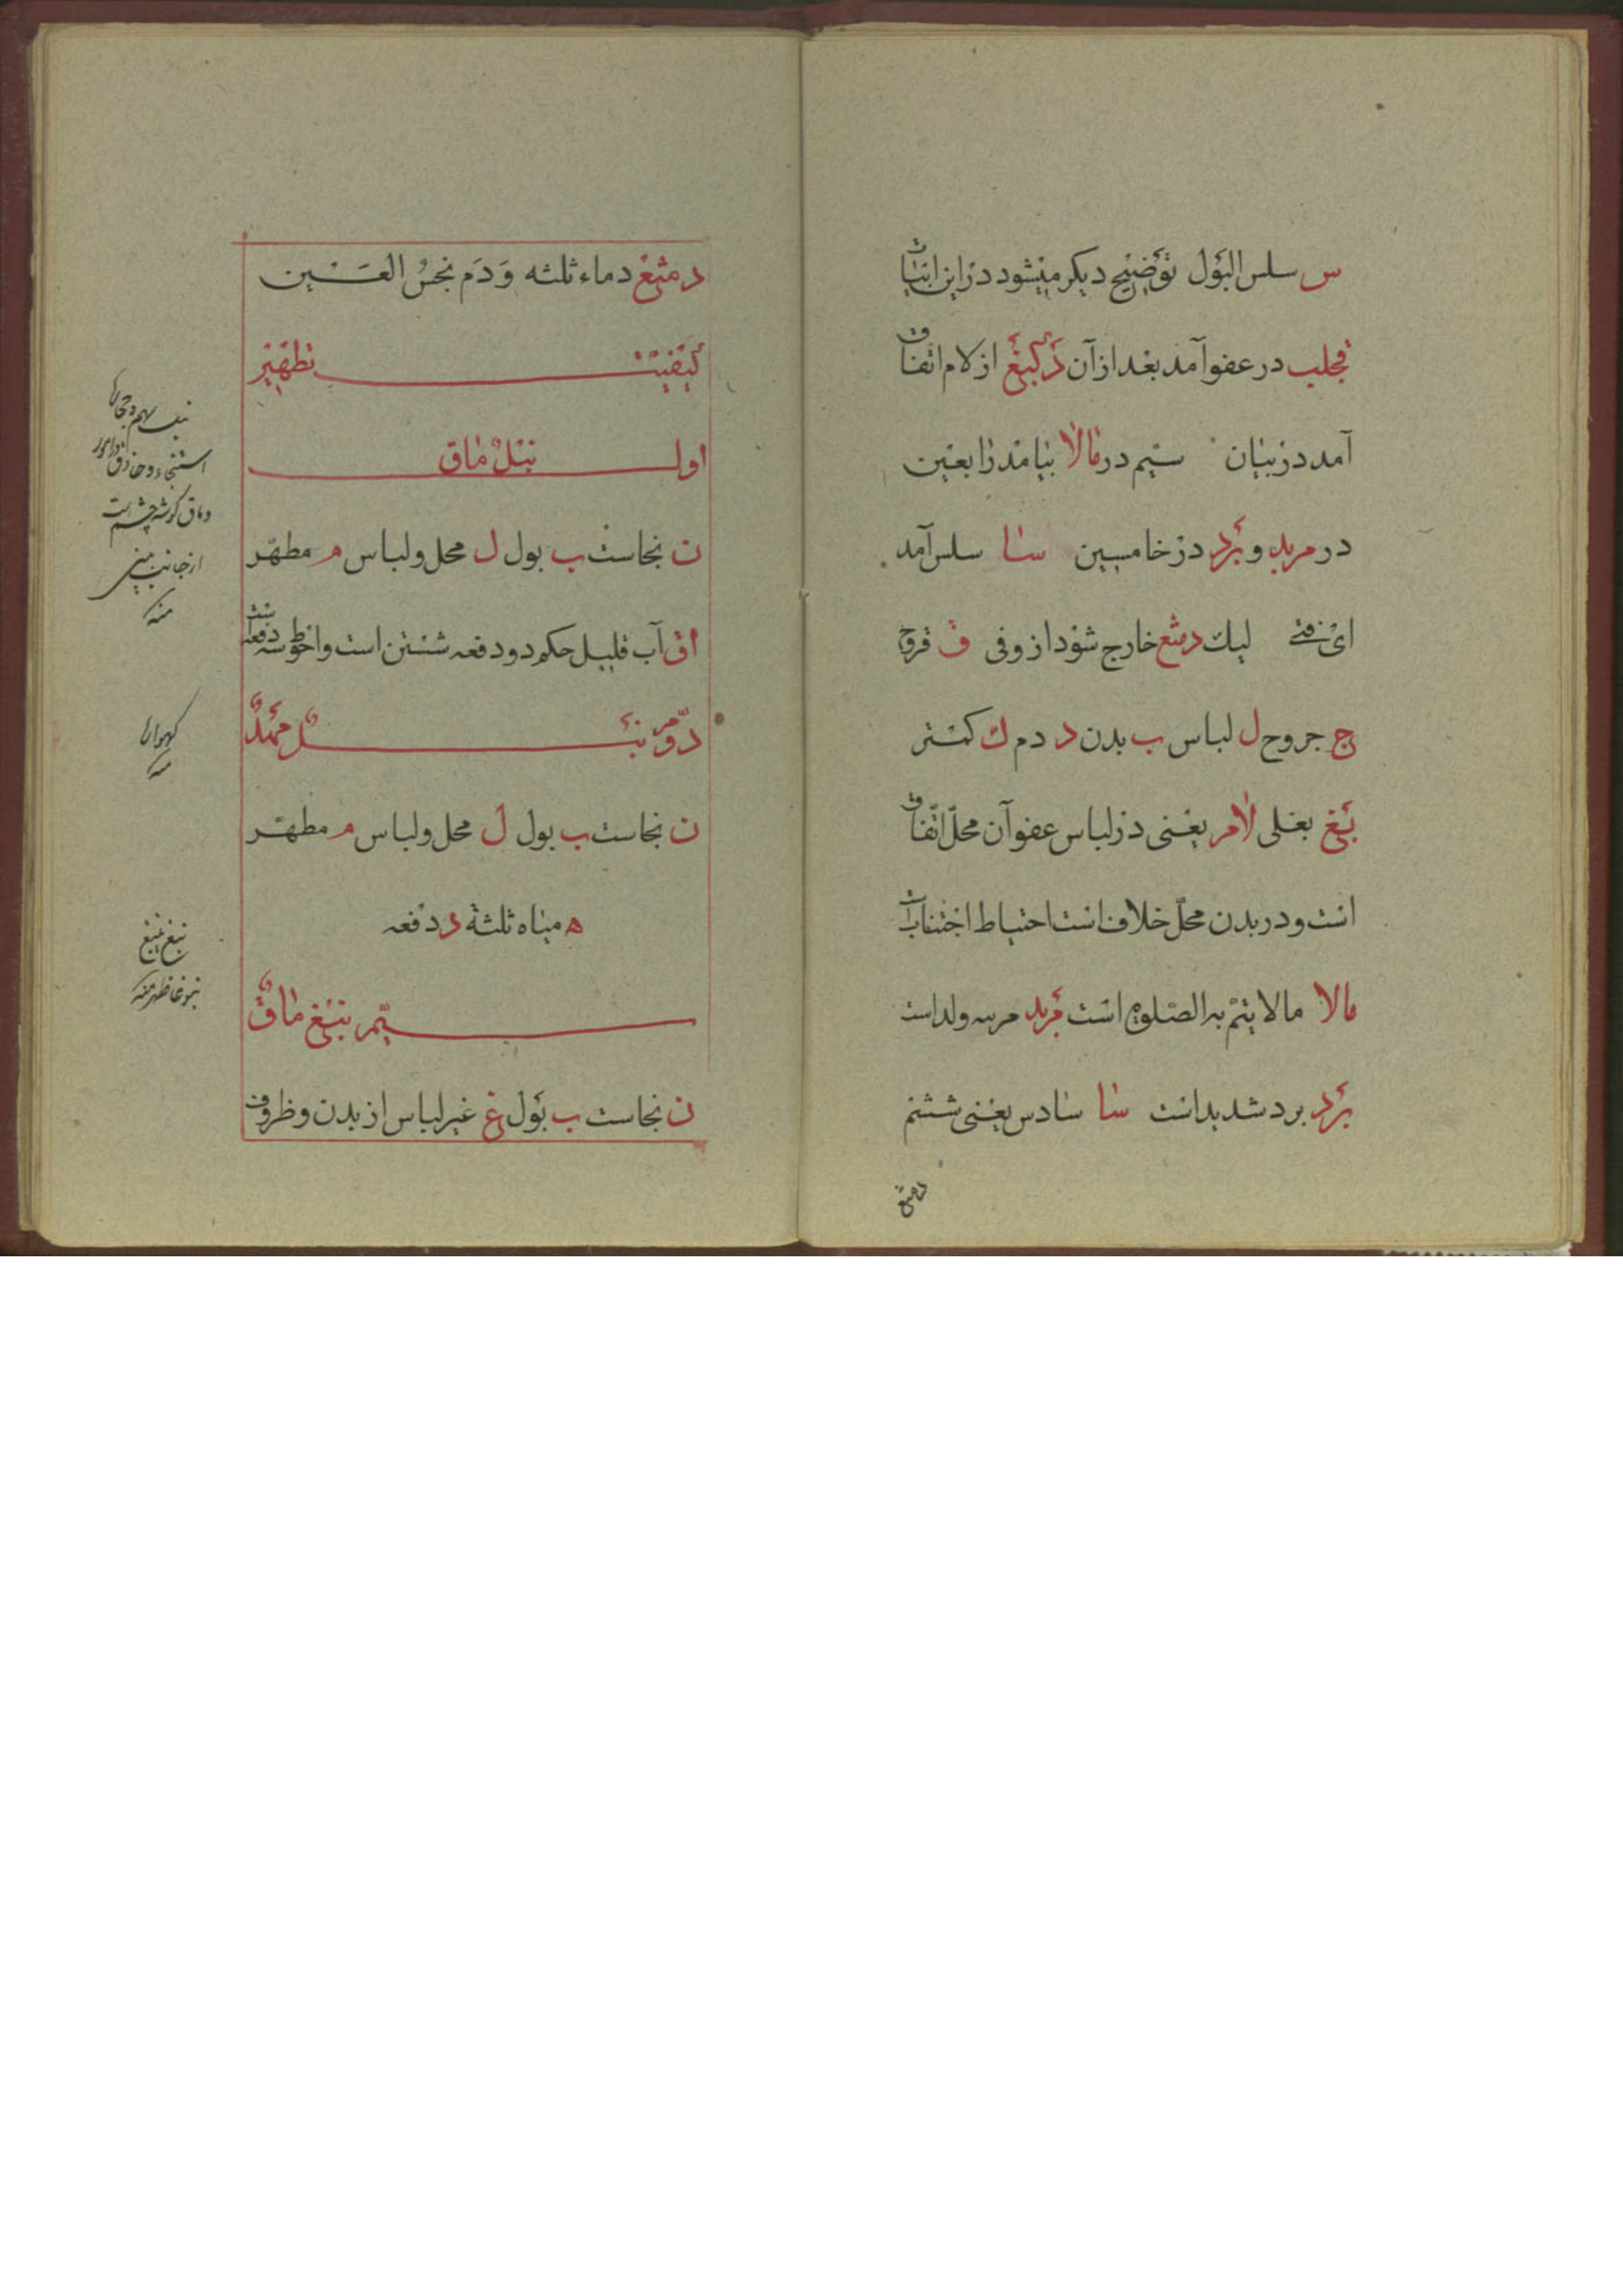 س سلس البَوْل تَوضیح دیکر میشود در این ابیات
قجلب در عفو آمد بعد از آن دَکبَغ از کلام اتفاق
آمد در بیان سیم در مالا بیامد رابعین
در مرید و بَرد در خامسین سا سلس آمد
ای فتی لیک دمثع خارج شود از وفی ق قروح
ج جروح ل لباس ب بدن د دم ك کمتر
بَغ بغلی لامر یعنی در لباس عفو آن محلّ اتّفاق
است و در بدن محلّ خلاف است احتیاط اجتناب
مالا مالا یتمّ به الصّلوة است مرید مربیه ولد است
بَرد برد شدید است سا سادس یعنی ششم
دمثع
دمثع دماء ثلثه وَ دَم نجسُ العَین
کیفیّت تطهیر
اول نبل ماق
ن نجاست ب بول ل محل و لباس م مطهّر
اق آب قلیل حکم دو دفعه شستن است و احوط سه دفعه است
دوّم نبل
ن نجاست ب بول ل محل و لباس م مطهّر
ه میاه ثلثة د دفعه
سیّم نبغ ماق
ن نجاست ب بَول غ غیر لباس از بدن و ظروف
استنجاء
و ماق کوشه چشم است
از جانب بینی
منه